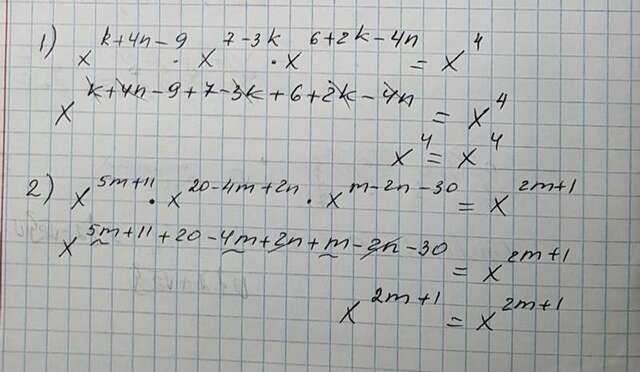 1) x^{k+4n-9} · x^{7-3k} · x^{6+2k-4n} = x^4
x^{k+4n-9+7-3k+6+2k-4n} = x^4
x^4 = x^4
2) x^{5m+11} · x^{20-4m+2n} · x^{m-2n-30} = x^{2m+1}
x^{5m+11+20-4m+2n+m-2n-30} = x^{2m+1}
x^{2m+1} = x^{2m+1}